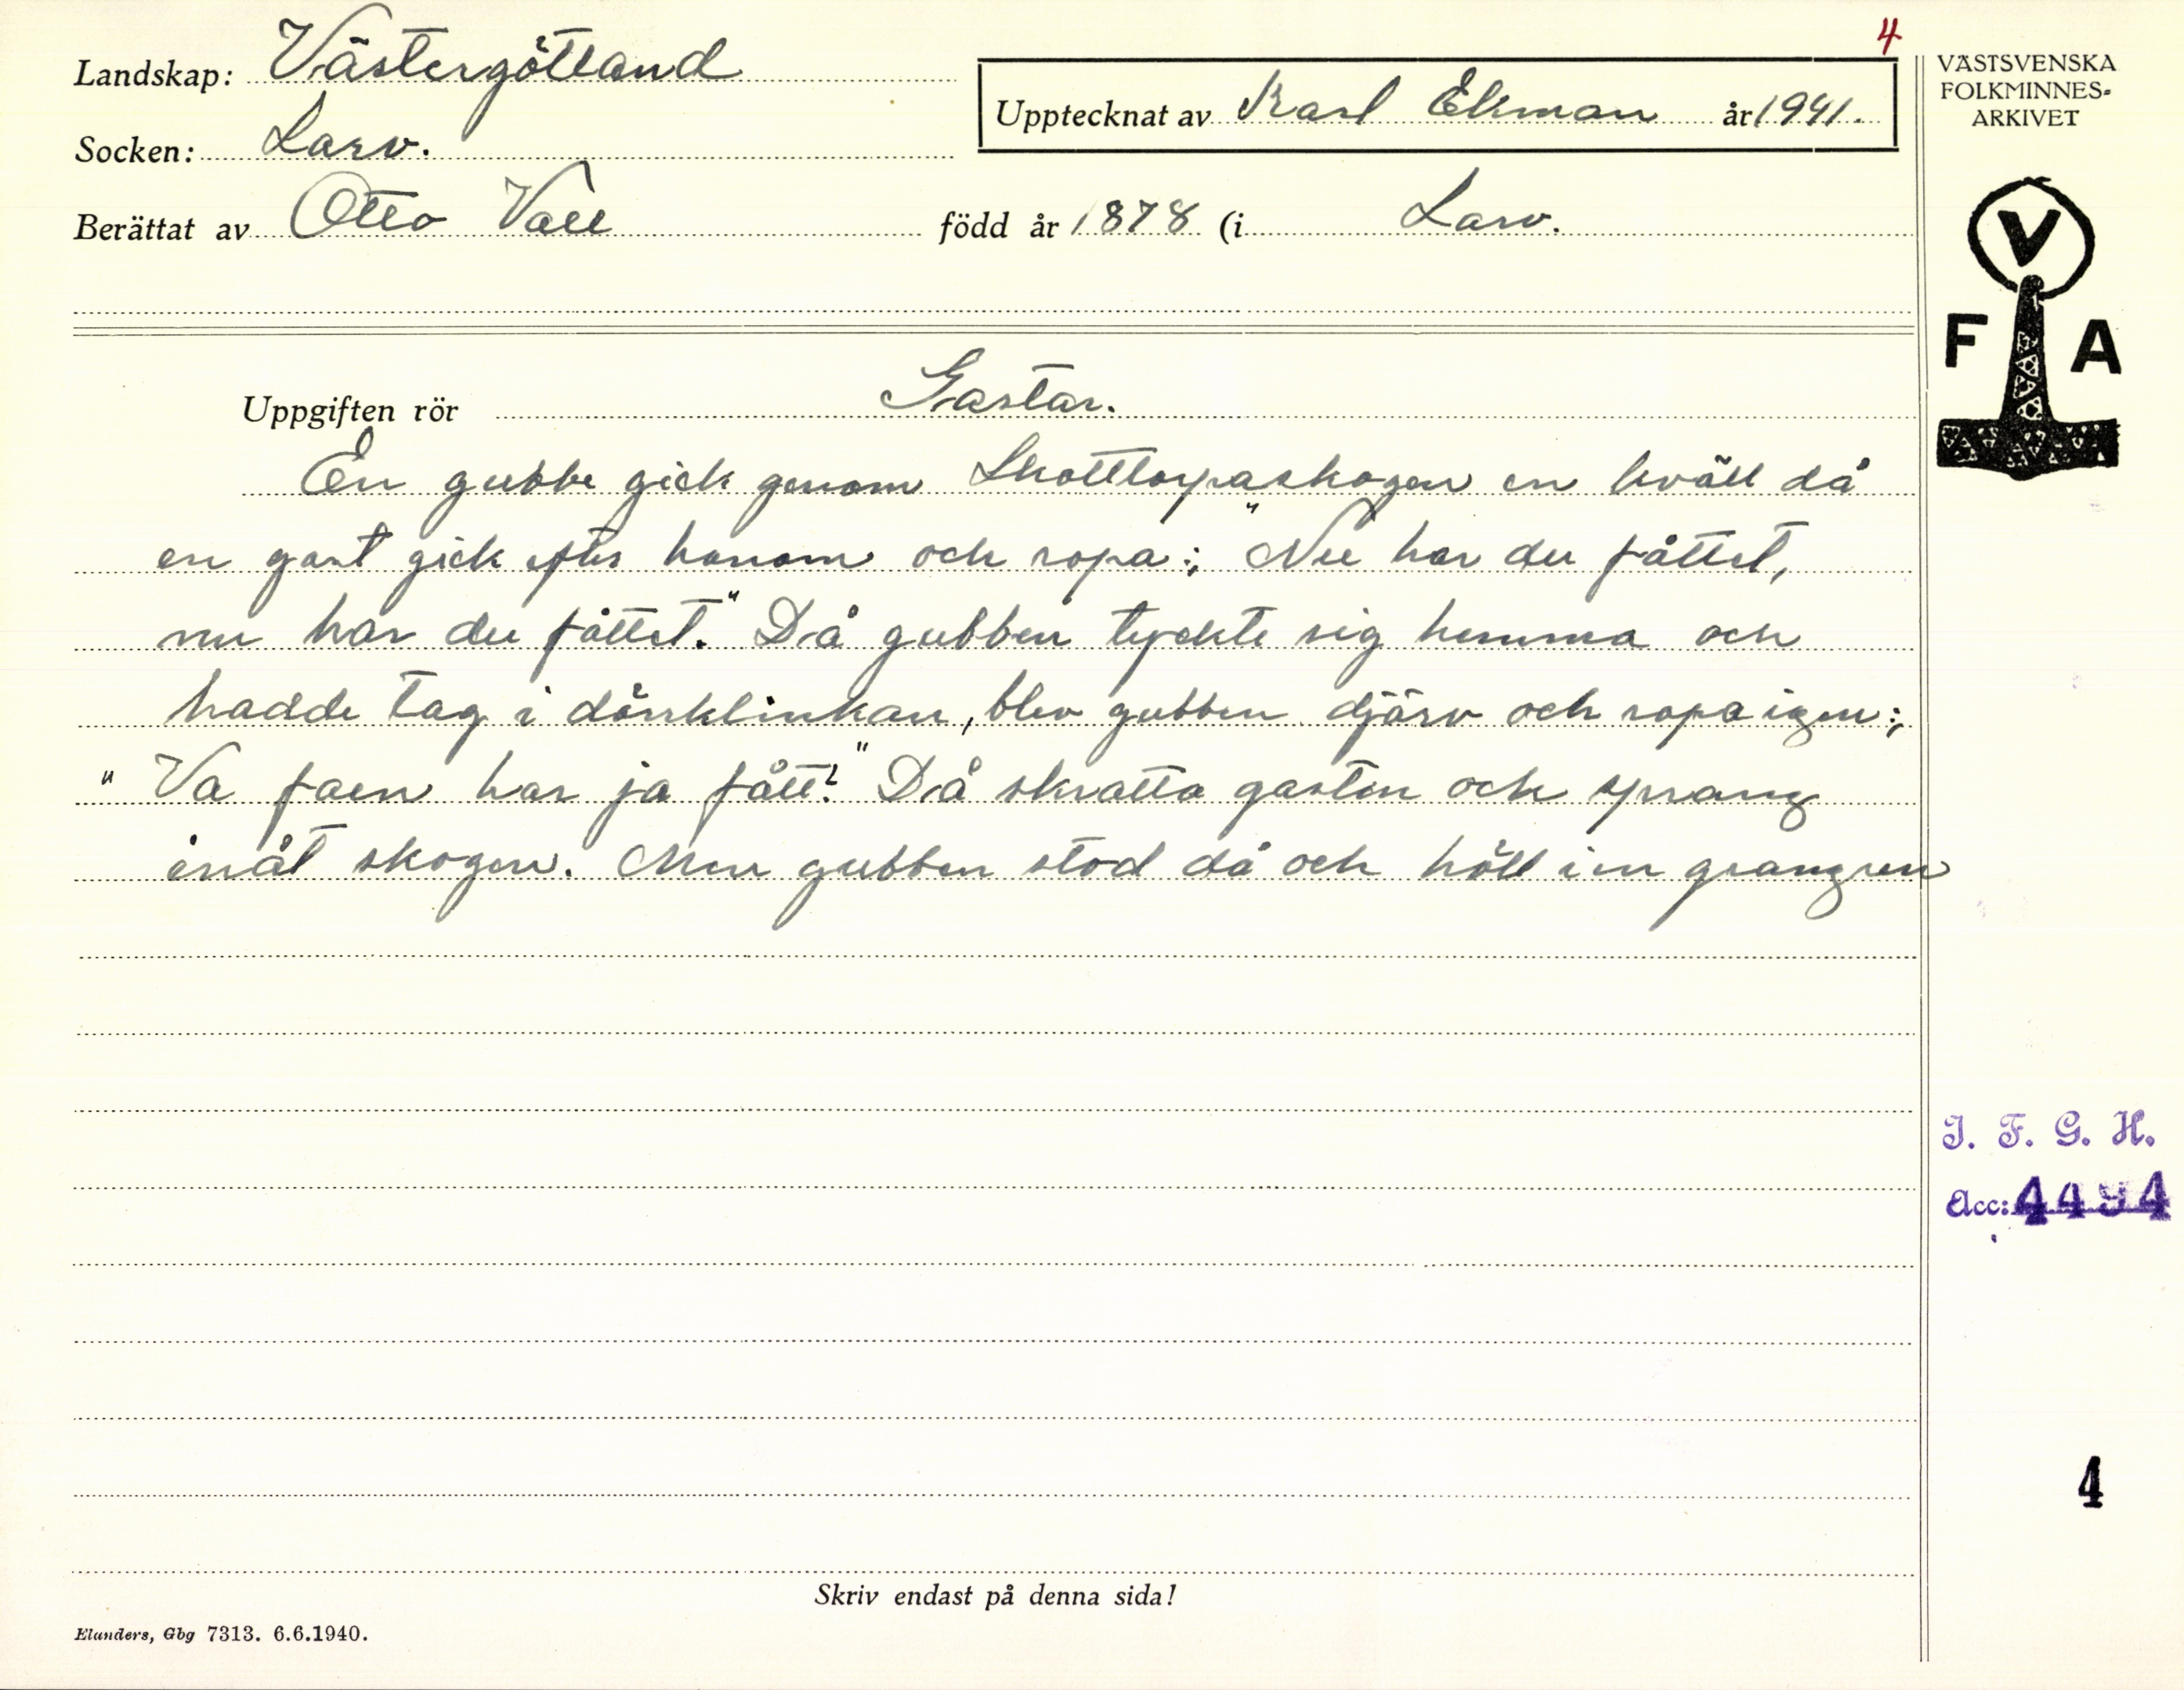 4
Landskap: Västergötland
Upptecknat av Karl Ekman år 1941.
Socken: Larv.
Berättat av Otto Vall född år 1878 (i Larv.
VÄSTSVENSKA
FOLKMINNES-
ARKIVET
V
F A
Uppgiften rör Gastar.
En gubbe gick genom Skottorpaskogen en kväll då
en gast gick efter honom och ropa: "Nu har du fåttet,
nu har du fåttet." Då gubben tyckte sig hemma och
hadde tag i dörrklinkan, blev gubben djärv och ropa igen:
"Va faen har ja fått?" Då skratta gasten och sprang
inåt skogen. Men gubben stod då och höll i en grangren
I. F. G. H.
Acc: 4494
4
Skriv endast på denna sida!
Elanders, Gbg 7313. 6.6.1940.